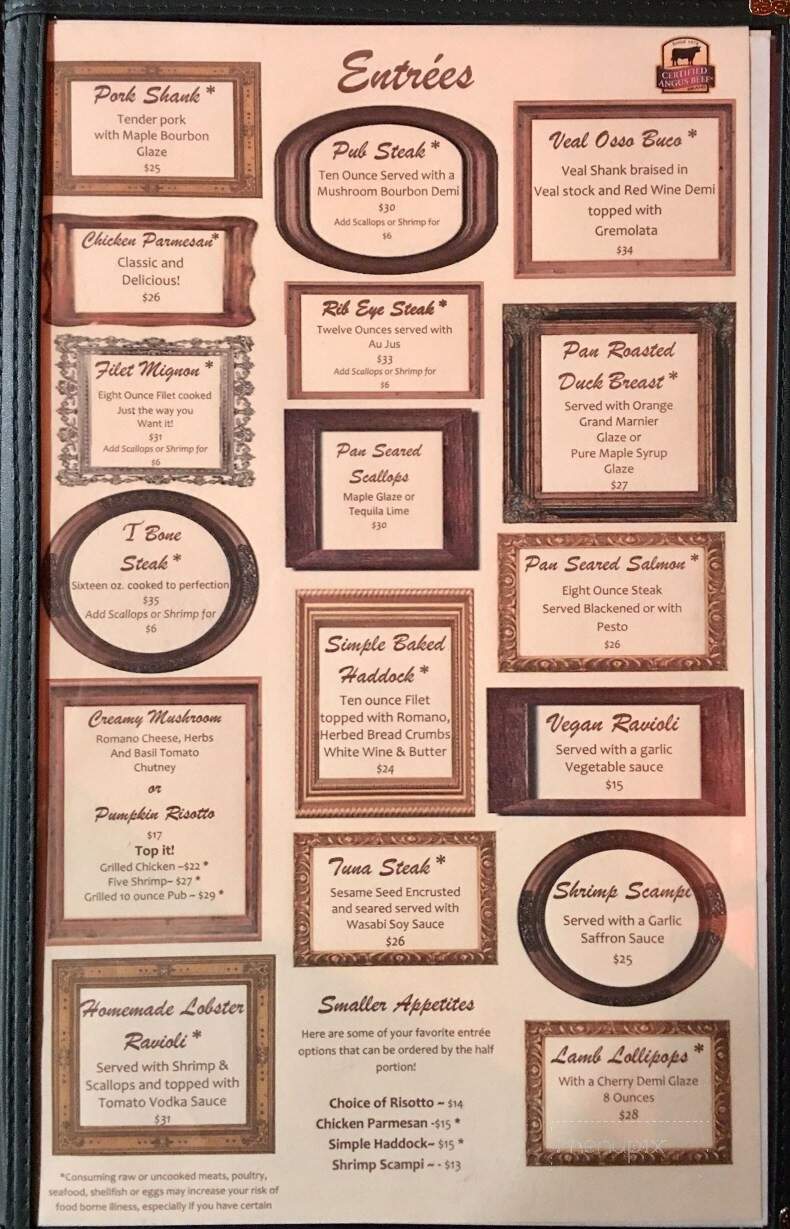 Entrées
SINCE 1978
CERTIFIED
ANGUS BEEF
Pork Shank *
Tender pork
with Maple Bourbon
Glaze
$25
Chicken Parmesan*
Classic and
Delicious!
$26
Filet Mignon *
Eight Ounce Filet cooked
Just the way you
Want it!
$31
Add Scallops or Shrimp for
$6
T Bone
Steak *
Sixteen oz. cooked to perfection
$35
Add Scallops or Shrimp for
$6
Creamy Mushroom
Romano Cheese, Herbs
And Basil Tomato
Chutney
or
Pumpkin Risotto
$17
Top it!
Grilled Chicken ~$22 *
Five Shrimp~ $27 *
Grilled 10 ounce Pub ~ $29 *
Homemade Lobster
Ravioli *
Served with Shrimp &
Scallops and topped with
Tomato Vodka Sauce
$31
*Consuming raw or uncooked meats, poultry,
seafood, shellfish or eggs may increase your risk of
food borne illness, especially if you have certain
Pub Steak *
Ten Ounce Served with a
Mushroom Bourbon Demi
$30
Add Scallops or Shrimp for
$6
Rib Eye Steak *
Twelve Ounces served with
Au Jus
$33
Add Scallops or Shrimp for
$6
Pan Seared
Scallops
Maple Glaze or
Tequila Lime
$30
Simple Baked
Haddock *
Ten ounce Filet
topped with Romano,
Herbed Bread Crumbs
White Wine & Butter
$24
Tuna Steak *
Sesame Seed Encrusted
and seared served with
Wasabi Soy Sauce
$26
Smaller Appetites
Here are some of your favorite entrée
options that can be ordered by the half
portion!
Choice of Risotto ~ $14
Chicken Parmesan -$15 *
Simple Haddock~ $15 *
Shrimp Scampi ~ - $13
Veal Osso Buco *
Veal Shank braised in
Veal stock and Red Wine Demi
topped with
Gremolata
$34
Pan Roasted
Duck Breast *
Served with Orange
Grand Marnier
Glaze or
Pure Maple Syrup
Glaze
$27
Pan Seared Salmon *
Eight Ounce Steak
Served Blackened or with
Pesto
$26
Vegan Ravioli
Served with a garlic
Vegetable sauce
$15
Shrimp Scampi
Served with a Garlic
Saffron Sauce
$25
Lamb Lollipops *
With a Cherry Demi Glaze
8 Ounces
$28
menupix